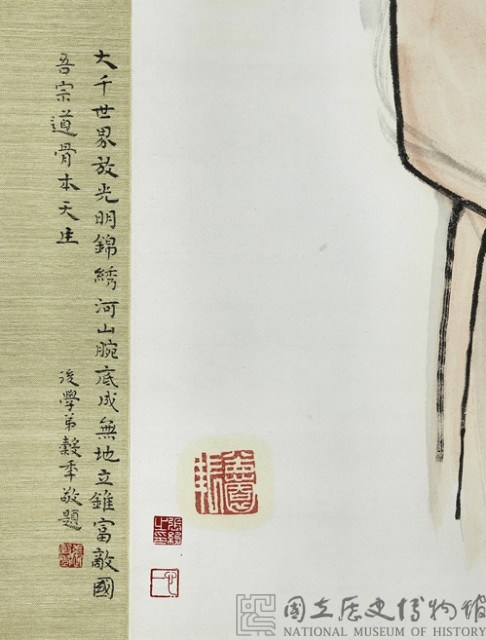 大千世界放光明錦綉河山腕底成無地立錐富敵國
吾宗道骨本天生
後學弟穀年敬題
國立歷史博物館
NATIONAL MUSEUM OF HISTORY